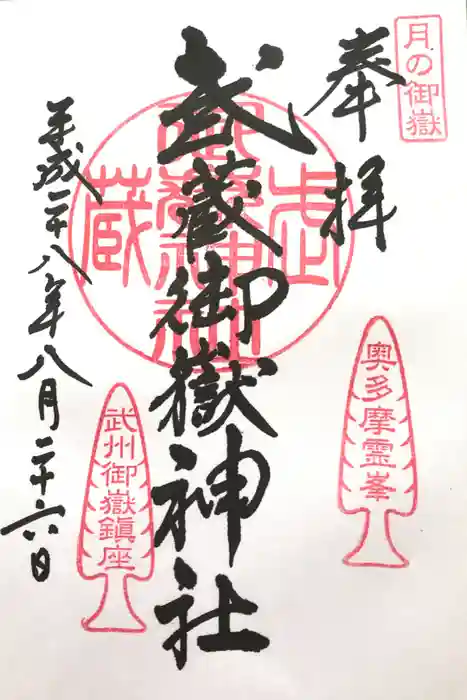 月の御嶽
奉拝
武蔵御嶽神社
武蔵
御嶽神社
奥多摩霊峯
武州御嶽鎮座
平成二十八年八月二十六日